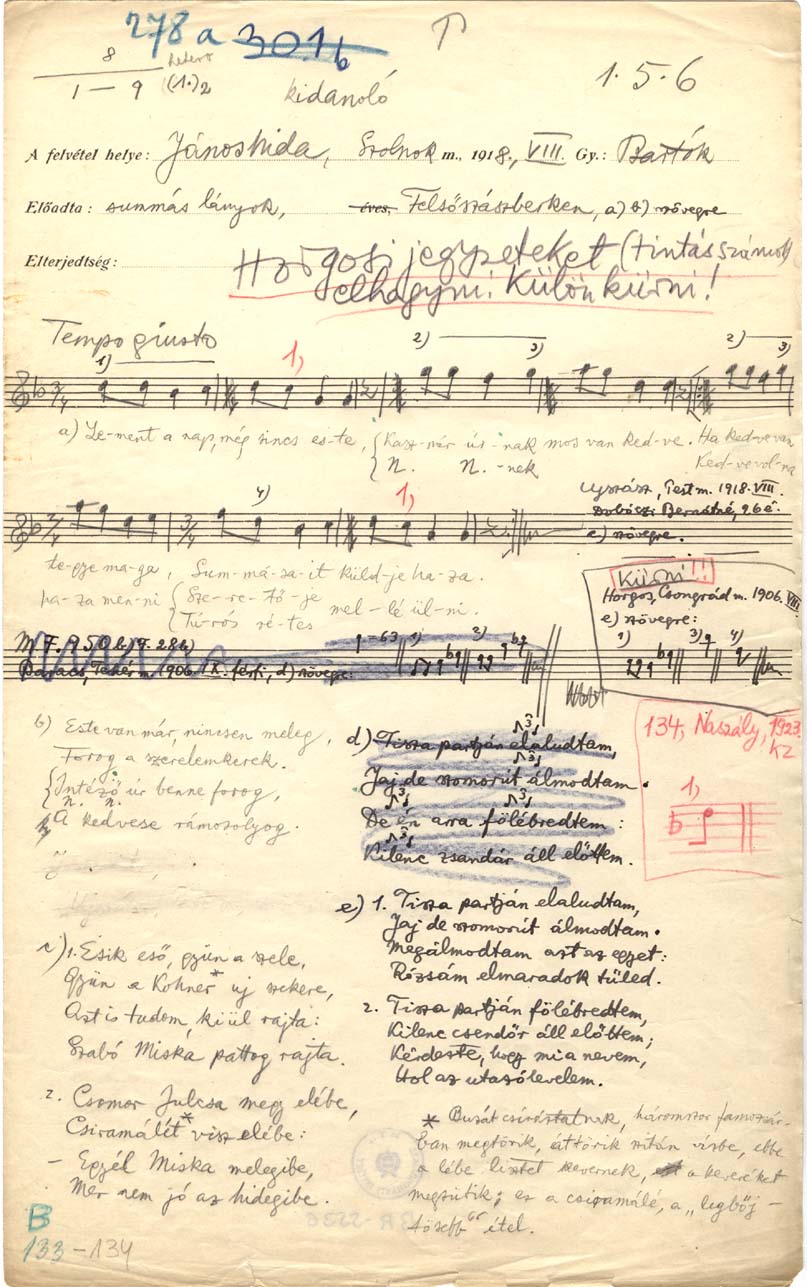 278a 301b
8
1 – 9 (1.)2
kidanoló
1.5.6
A felvétel helye: Jánoshida, Szolnok m., 1918., VIII. Gy.: Bartók
Előadta: summás lányok, éves, Felsőszászberken, a) b) szövegre
Elterjedtség:
Horgosi jegyzeteket (tintás számok)
elhagyni! Külön kiírni!
Tempo giusto
1) 1, 2) 3) 2) 3)
a) Le-ment a nap, még sincs es-te, Kasz-nár úr-nak mos van ked-ve. Ha ked-ve van
N. N.-nek Ked-ve vol-na
Ujszász, Pest m. 1918. VIII.
4) 1,
Szobószi Bernátné, 26 é.
c) szövegre.
te-gye ma-ga, Sum-má-sa-it küld-je ha-za.
ha-za men-ni Sze-re-tő-je mel-lé ül-ni.
Tú-rós ré-tes
Kiírni!!
Horgos, Csongrád m. 1906. VIII.
e) szövegre:
1) 3) 4)
M.F. 950b)
Baracs, Fehér m. 1906. IX. férfi, d) szövegre:
=63 1) 3)
134, Naszály, 1923.
Kz
1,
b) Este van már, nincsen meleg,
Forog a szerelemkerek.
Intéző úr benne forog,
N. N.
A kedvese rámosolyog.
d) Tisza partján elaludtam,
Jaj de szomorút álmodtam.
De én arra fölébredtem:
Kilenc zsandár áll előttem.
c) 1. Esik eső, gyün a szele,
Gyün a Kohner* uj szekere,
Azt is tudom, ki ül rajta:
Szabó Miska pattog rajta.
2. Csomor Julcsa megy elébe,
Csiramálét* visz elébe:
– Egyél Miska melegibe,
Mer nem jó az hidegibe.
e) 1. Tisza partján elaludtam,
Jaj de szomorút álmodtam.
Megálmodtam azt az egyet:
Rózsám elmaradok tüled.
2. Tisza partján fölébredtem,
Kilenc csendőr áll előttem;
Kérdezte, hogy mi a nevem,
Hol az utazólevelem.
* Buzát csiráztatnak, háromszor famozsár-
ban megtörik, áttörik szitán vizbe, ebbe
a lébe lisztet kevernek, a keveréket
megsütik; ez a csiramálé, a „legbőj-
tösebb" étel.
B
133–134